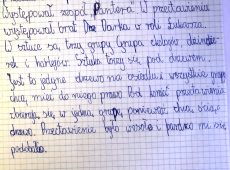 Występował zespół Pantera. W przedstawieniu
występował brat Darka w roli Łukasza.
W sztuce są trzy grupy. Grupa
i Sztuka toczy się pod drzewem.
Jest to jedyne drzewo na osiedlu i wszystkie grupy
chcą mieć do niego prawo. Pod koniec przedstawienia
w jedną grupę, ponieważ chcą ściąć
drzewo. Przedstawienie było wesołe i bardzo mi się
podobało.